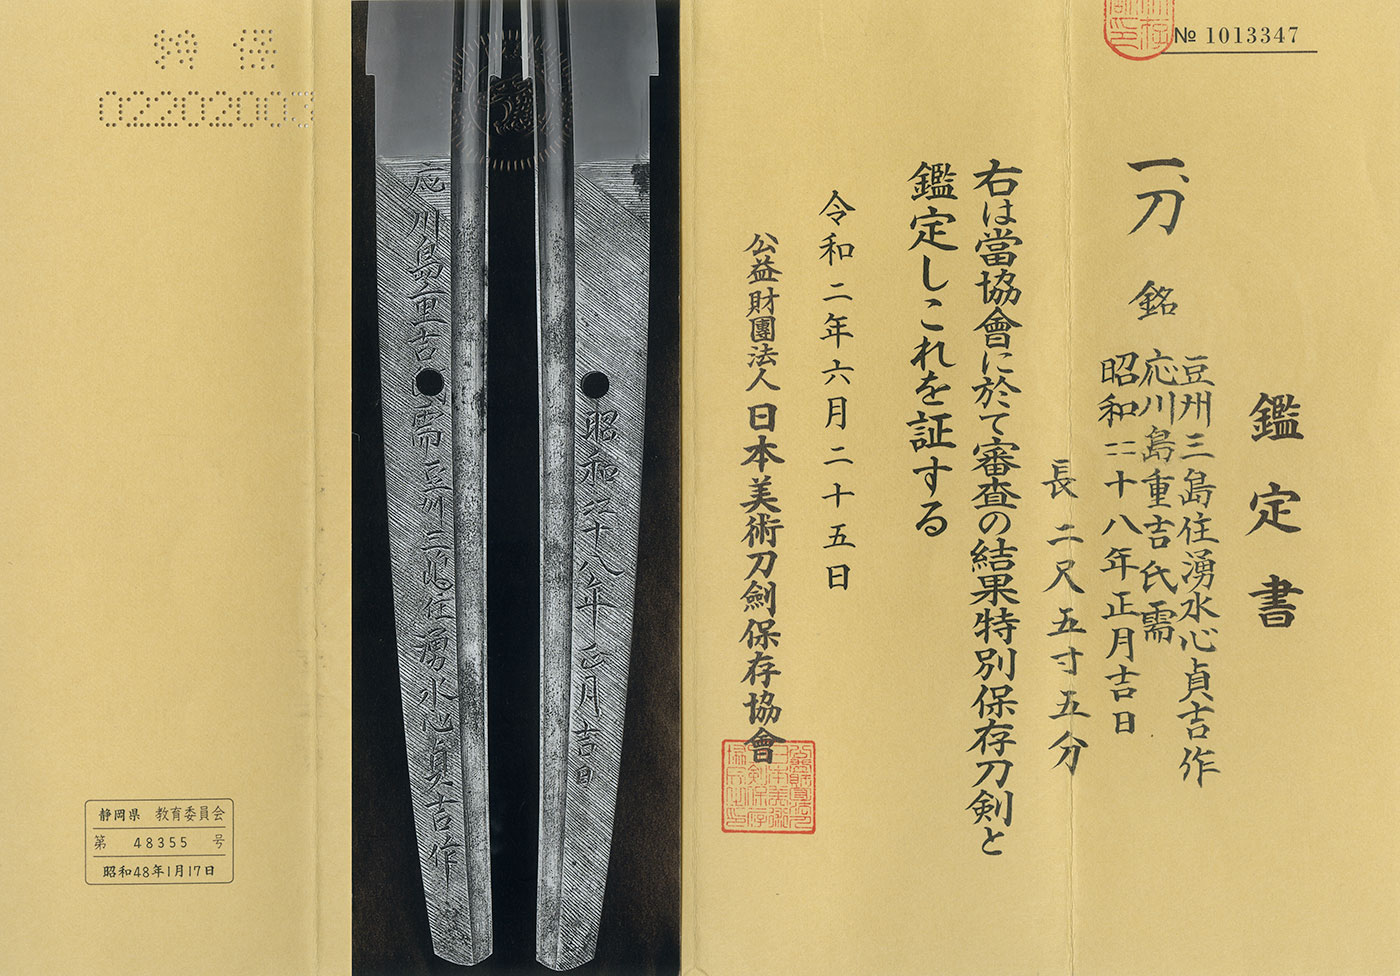 № 1013347
鑑定書
一、刀
銘
豆州三島住湧水心貞吉作
応川島重吉氏需
昭和二十八年正月吉日
長 二尺五寸五分
右は當協會に於て審査の結果特別保存刀剣と
鑑定しこれを証する
令和二年六月二十五日
公益財團法人 日本美術刀劍保存協會
昭和二十八年正月吉日
応川島重吉氏需豆州三島住湧水心貞吉作
特保
02202003
静岡県 教育委員会
第 48355 号
昭和48年1月17日